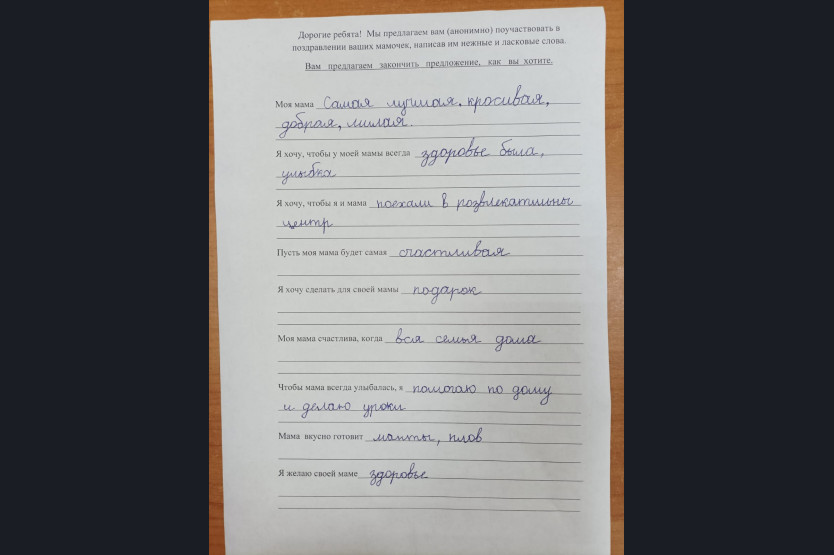 Дорогие ребята! Мы предлагаем вам (анонимно) поучаствовать в
поздравлении ваших мамочек, написав им нежные и ласковые слова.
Вам предлагаем закончить предложение, как вы хотите.
Моя мама Самая лучшая. красивая,
добрая, милая.
Я хочу, чтобы у моей мамы всегда здоровье была,
улыбка
Я хочу, чтобы я и мама поехали в розвлекатильны
центр
Пусть моя мама будет самая счастливая
Я хочу сделать для своей мамы подарок
Моя мама счастлива, когда вся семья дома
Чтобы мама всегда улыбалась, я помогаю по дому
и делаю уроки
Мама вкусно готовит манты, плов
Я желаю своей маме здоровье